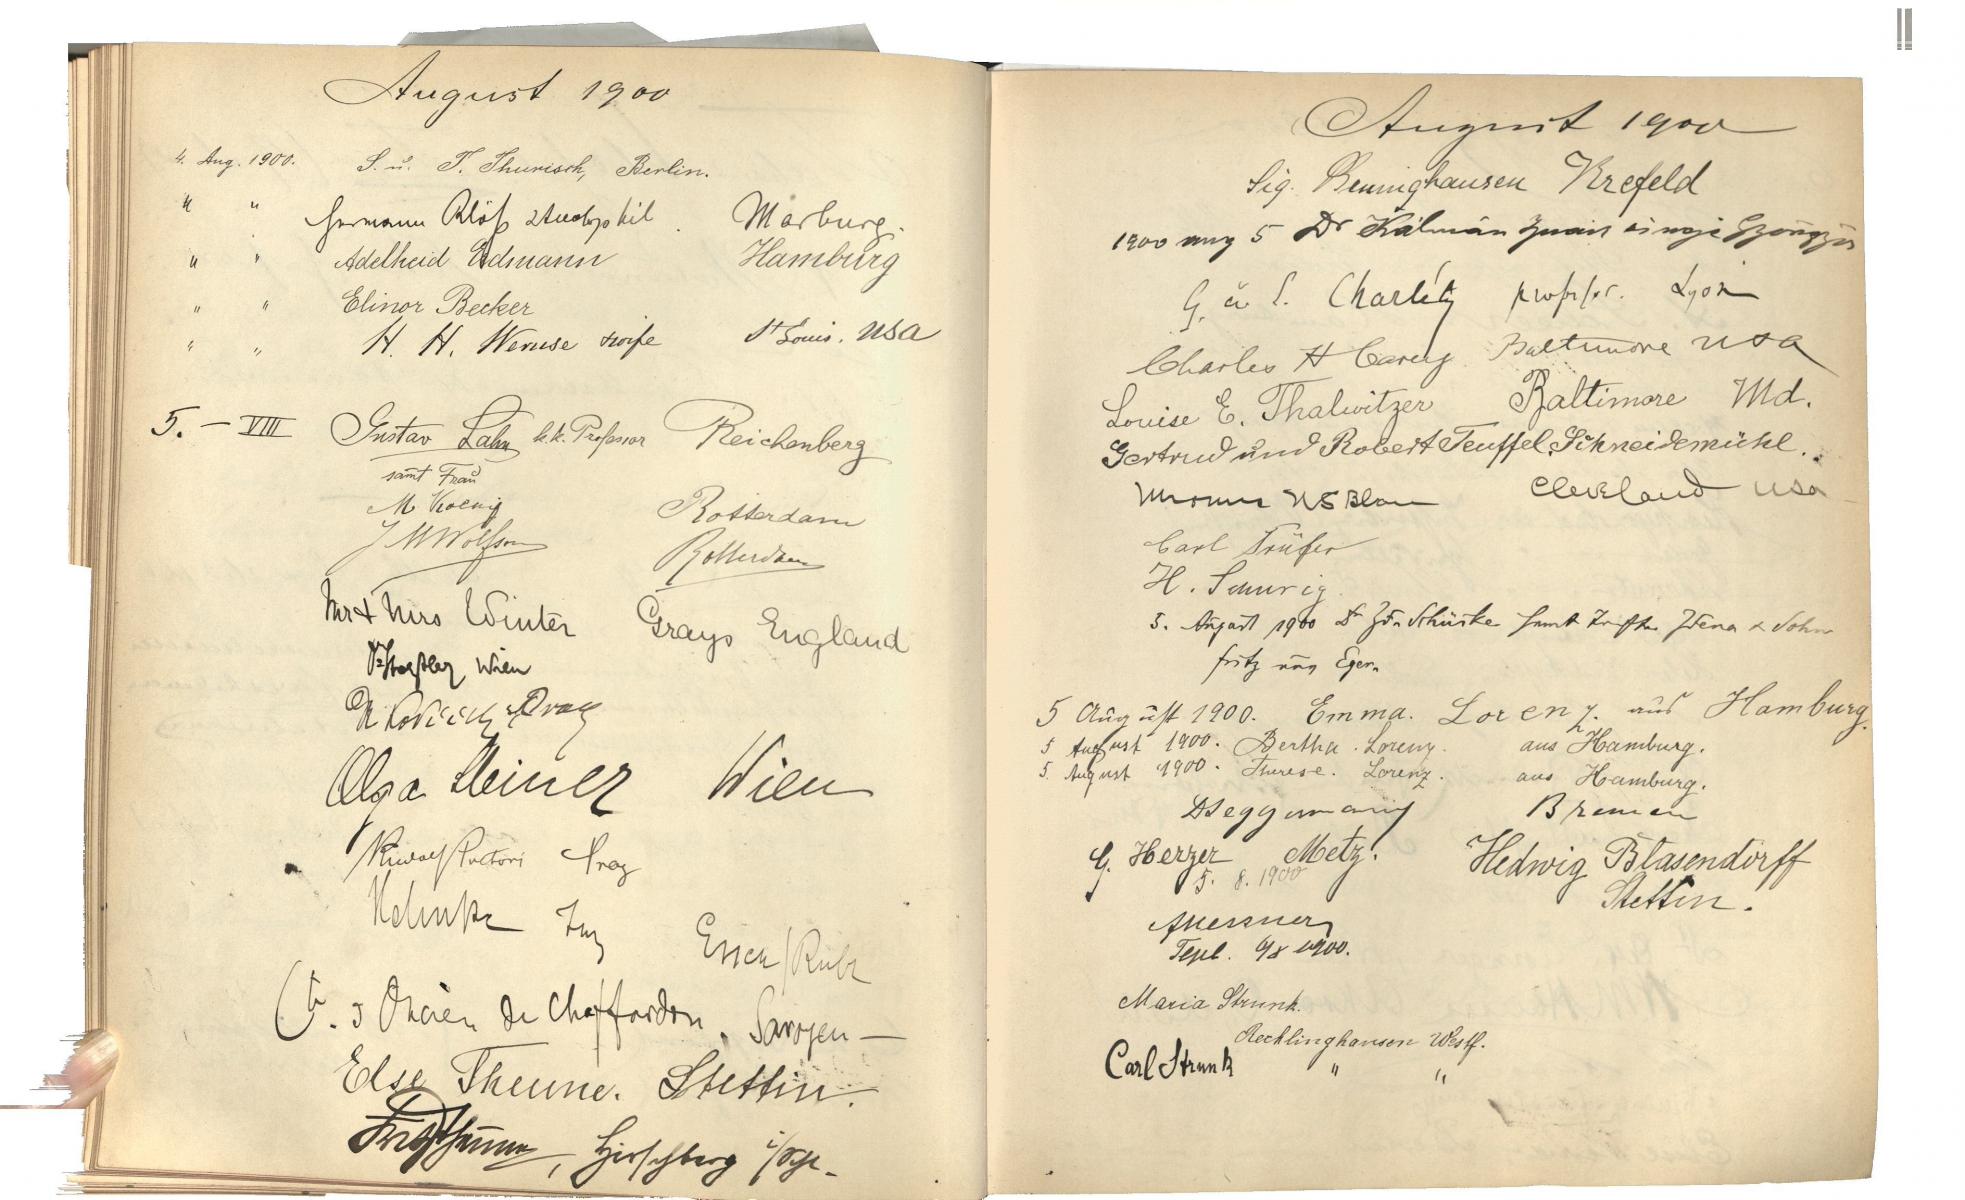 August 1900
4. Aug. 1900. S. u. T. Thurisch, Berlin.
" " Hermann Klöß Marburg.
" " Adelheid Erdmann Hamburg
" " Elinor Becker
" " H. H. Wernse wife St Louis. USA
5. – VIII Gustav Lahn k.k. Professor Reichenberg
samt Frau
M Koenig Rotterdam
J M Wolfson Rotterdam
Mr + Mrs Winter Grays England
Wien
Prag
Olga Steiner Wien
Rudolf Prag
Essen/Ruhr
de Chaffardon. Savoyen —
Else Theune. Stettin.
Fritz Theune, Hirschberg i/Schl.
August 1900
Sig. Benninghausen Krefeld
1900 aug 5 Dr Kálmán Gyöngyös
G. u. L. Charléty professor. Lyon
Charles H Carey Baltimore USA
Louise E. Thalwitzer Baltimore Md.
Gertrud und Robert Teuffel, Schneidemühl.
Cleveland USA
Carl Trüfer
H. Schurig
5. August 1900 Dr samt & Sohn
Fritz aus Eger.
5 August 1900. Emma. Lorenz. aus Hamburg.
5 August 1900. Bertha. Lorenz. aus Hamburg.
5. August 1900. Therese. Lorenz. aus Hamburg.
Bremen
G. Herzer Metz.
5. 8. 1900
Hedwig Blasendorff
Stettin.
A Messner
Tepl. 6/8 1900.
Maria Strunk.
Recklinghausen Westf.
Carl Strunk " "